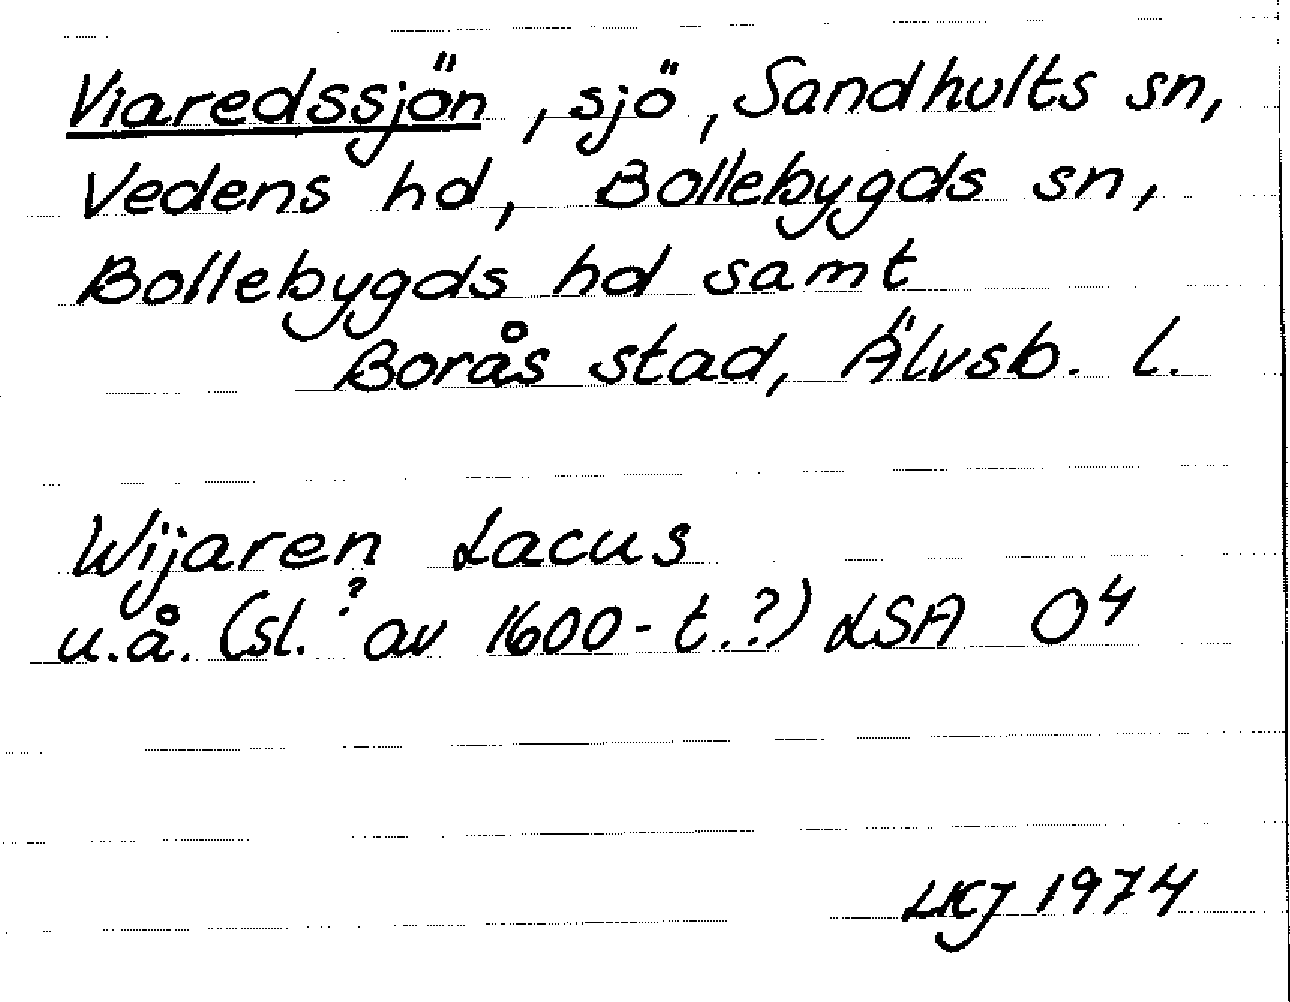 Viaredssjön, sjö, Sandhults sn,
Vedens hd, Bollebygds sn,
Bollebygds hd samt
Borås stad, Älvsb. l.
Wijaren Lacus
u.å. (sl.? av 1600-t.?) LSA O4
LKJ 1974